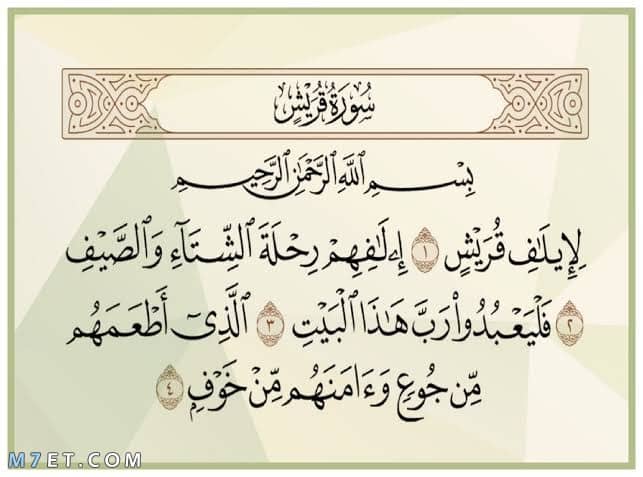 سُورَةُ قُرَيْشٍ
بِسْمِ ٱللَّهِ ٱلرَّحْمَٰنِ ٱلرَّحِيمِ
لِإِيلَٰفِ قُرَيْشٍ ١ إِۦلَٰفِهِمْ رِحْلَةَ ٱلشِّتَآءِ وَٱلصَّيْفِ
٢ فَلْيَعْبُدُوا۟ رَبَّ هَٰذَا ٱلْبَيْتِ ٣ ٱلَّذِىٓ أَطْعَمَهُم
مِّن جُوعٍ وَءَامَنَهُم مِّنْ خَوْفٍۭ ٤
M7ET.COM